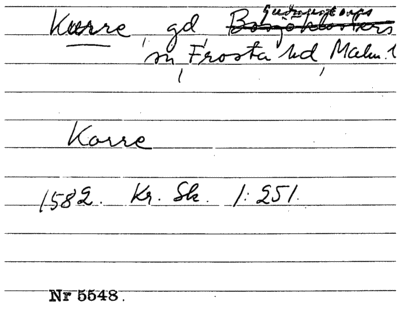 Kurre, gd, Bosjöklosters
sn, Frosta hd, Malm. l
Korre
1582. Kr. Sk. 1:251.
Nr 5548.